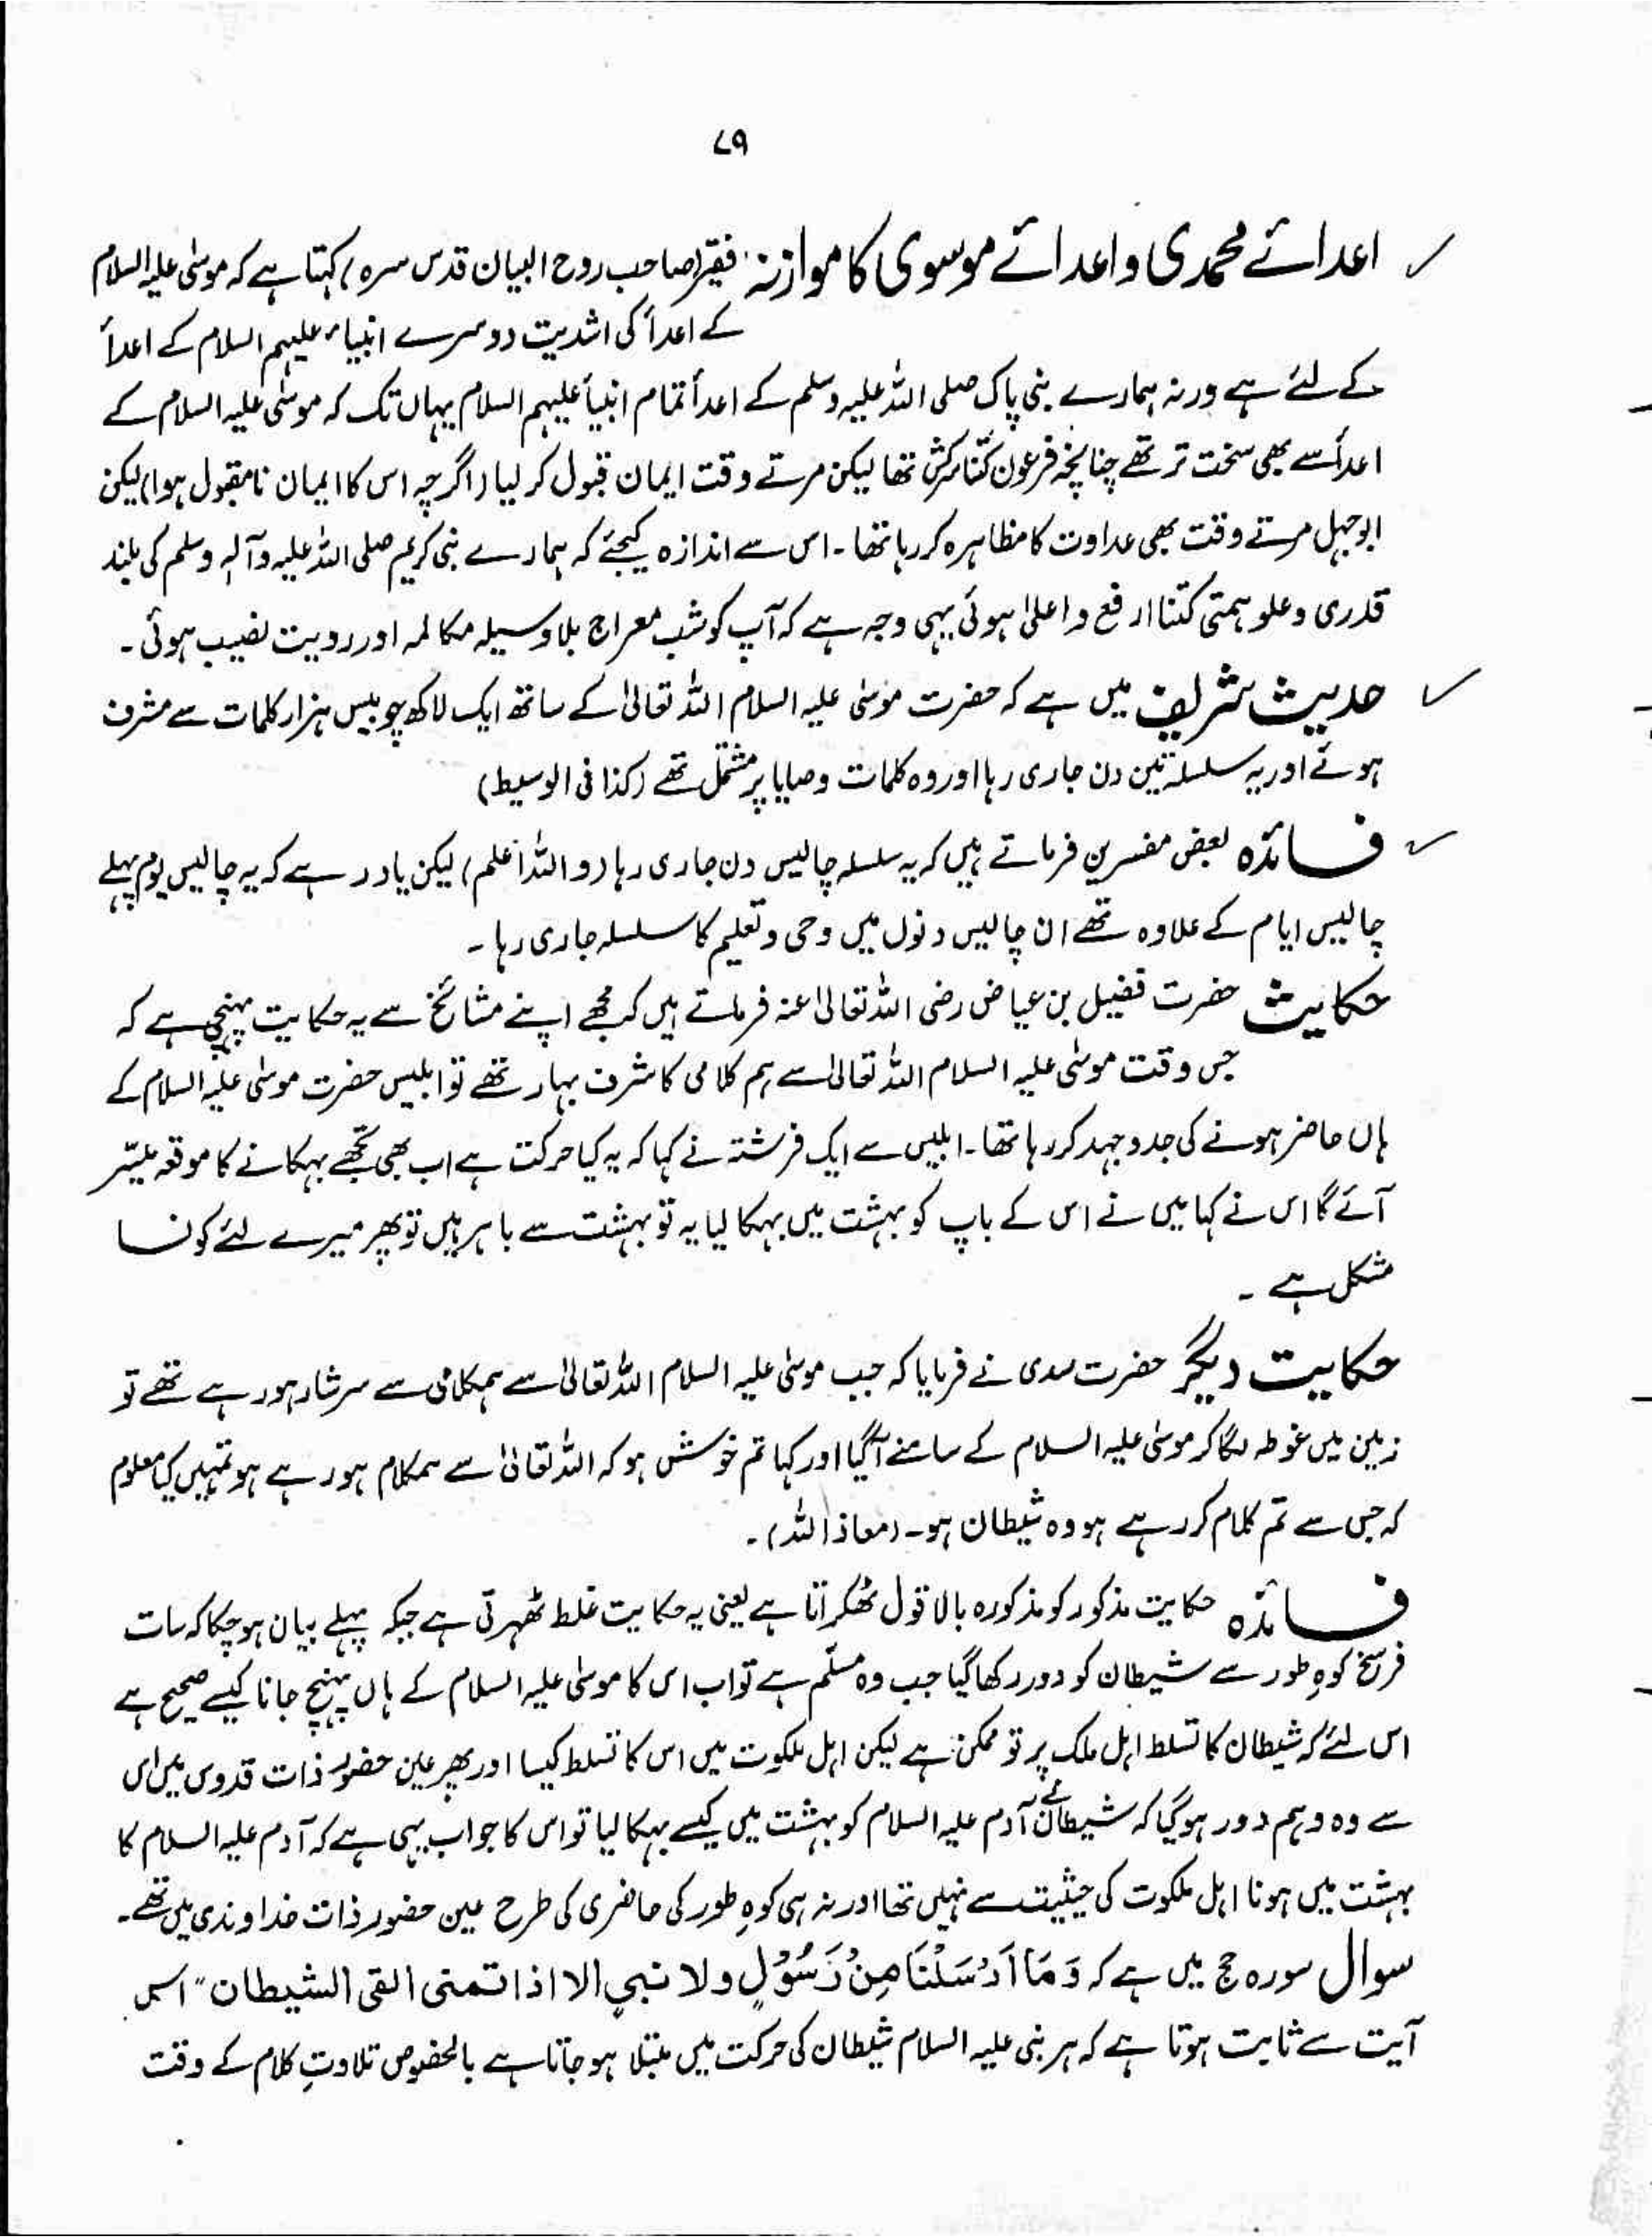 ۷۹
اعدائے محمدی و اعدائے موسوی کا موازنہ: فقیر (صاحب روح البیان قدس سرہ) کہتا ہے کہ موسٰی علیہ السلام
کے اعدأ کی اشدیت دوسرے انبیاء علیہم السلام کے اعدأ
کے لئے ہے ورنہ ہمارے نبی پاک صلی اللہ علیہ وسلم کے اعدأ تمام انبیأ علیہم السلام یہاں تک کہ موسٰی علیہ السلام کے
اعدأ سے بھی سخت تر تھے چنانچہ فرعون کتنا سرکش تھا لیکن مرتے وقت ایمان قبول کر لیا (اگرچہ اس کا ایمان نامقبول ہوا) لیکن
ابوجہل مرتے وقت بھی عداوت کا مظاہرہ کر رہا تھا۔ اس سے اندازہ کیجئے کہ ہمارے نبی کریم صلی اللہ علیہ وآلہٖ وسلم کی بلند
قدری و علو ہمتی کتنا ارفع و اعلیٰ ہوئی یہی وجہ ہے کہ آپ کو شب معراج بلا وسیلہ مکالمہ اور رویت نصیب ہوئی۔
حدیث شریف میں ہے کہ حضرت موسٰی علیہ السلام اللہ تعالیٰ کے ساتھ ایک لاکھ چوبیس ہزار کلمات سے مشرف
ہوئے اور یہ سلسلہ تین دن جاری رہا اور وہ کلمات وصایا پر مشتمل تھے (کذا فی الوسیط)
فائدہ بعض مفسرین فرماتے ہیں کہ یہ سلسلہ چالیس دن جاری رہا (واللہ اعلم) لیکن یاد رہے کہ یہ چالیس یوم پہلے
چالیس ایام کے علاوہ تھے ان چالیس دنوں میں وحی و تعلیم کا سلسلہ جاری رہا۔
حکایت حضرت فضیل بن عیاض رضی اللہ تعالیٰ عنہ فرماتے ہیں کہ مجھے اپنے مشائخ سے یہ حکایت پہنچی ہے کہ
جس وقت موسٰی علیہ السلام اللہ تعالیٰ سے ہم کلامی کا شرف پہا رہے تھے تو ابلیس حضرت موسٰی علیہ السلام کے
ہاں حاضر ہونے کی جدوجہد کر رہا تھا۔ ابلیس سے ایک فرشتہ نے کہا کہ یہ کیا حرکت ہے اب بھی تجھے بہکانے کا موقعہ میسّر
آئے گا اس نے کہا میں نے اس کے باپ کو بہشت میں بہکا لیا یہ تو بہشت سے باہر ہیں تو پھر میرے لئے کونسا
مشکل ہے ۔
حکایت دیگر حضرت سدی نے فرمایا کہ جب موسٰی علیہ السلام اللہ تعالیٰ سے ہمکلامی سے سرشار ہو رہے تھے تو
زمین میں غوطہ لگا کر موسٰی علیہ السلام کے سامنے آگیا اور کہا تم خوش ہو کہ اللہ تعالیٰ سے ہمکلام ہو رہے ہو تمہیں کیا معلوم
کہ جس سے تم کلام کر رہے ہو وہ شیطان ہو۔ (معاذ اللہ)۔
فائدہ حکایت مذکور کو مذکورہ بالا قول ٹھکراتا ہے یعنی یہ حکایت غلط ٹھہرتی ہے جبکہ پہلے بیان ہو چکا کہ سات
فرسخ کوہِ طور سے شیطان کو دور رکھا گیا جب وہ مسلّم ہے تو اب اس کا موسٰی علیہ السلام کے ہاں پہنچ جانا کیسے صحیح ہے
اس لئے کہ شیطان کا تسلط اہل ملک پر تو ممکن ہے لیکن اہل ملکوت میں اس کا تسلط کیسا اور پھر عین حضور ذات قدوس میں اس
سے وہ وہم دور ہو گیا کہ شیطان نے آدم علیہ السلام کو بہشت میں کیسے بہکا لیا تو اس کا جواب یہی ہے کہ آدم علیہ السلام کا
بہشت میں ہونا اہل ملکوت کی حیثیت سے نہیں تھا اور نہ ہی کوہِ طور کی حاضری کی طرح عین حضور ذات خداوندی میں تھے۔
سوال سورہ حج میں ہے کہ وَمَا اَرْسَلْنَا مِنْ رَسُوْلٍ ولا نبیٍ الا اذا تمنی القی الشیطان" اس
آیت سے ثابت ہوتا ہے کہ ہر نبی علیہ السلام شیطان کی حرکت میں مبتلا ہو جاتا ہے بالخصوص تلاوتِ کلام کے وقت